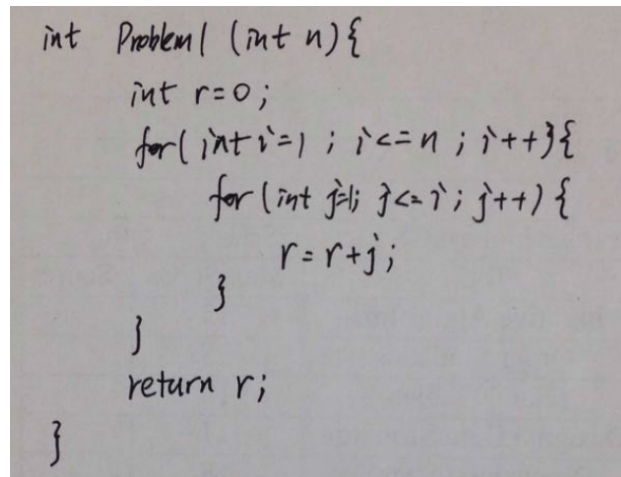 int Problem1 (int n){
int r=0;
for(int i=1; i<=n; i++){
for (int j=1; j<=i; j++) {
r=r+j;
}
}
return r;
}